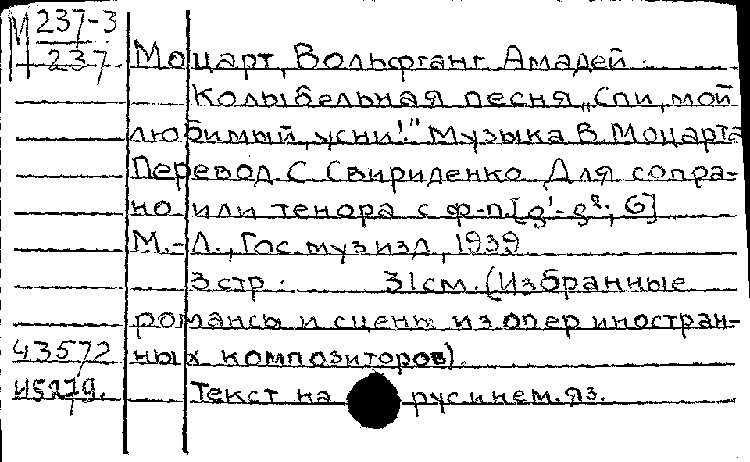 М 237-3
237
Моцарт, Вольфганг Амадей.
Колыбельная песня „Спи, мой
любимый, усни!" Музыка В. Моцарта
Перевод С. Свириденко. Для сопра-
но или тенора с ф-п. [g¹-g²; G]
М.-Л., Гос. муз. изд., 1939
3 стр. 31 см. (Избранные
романсы и сцены из опер иностран-
43572 ных композиторов).
И5279. Текст на рус. и нем. яз.